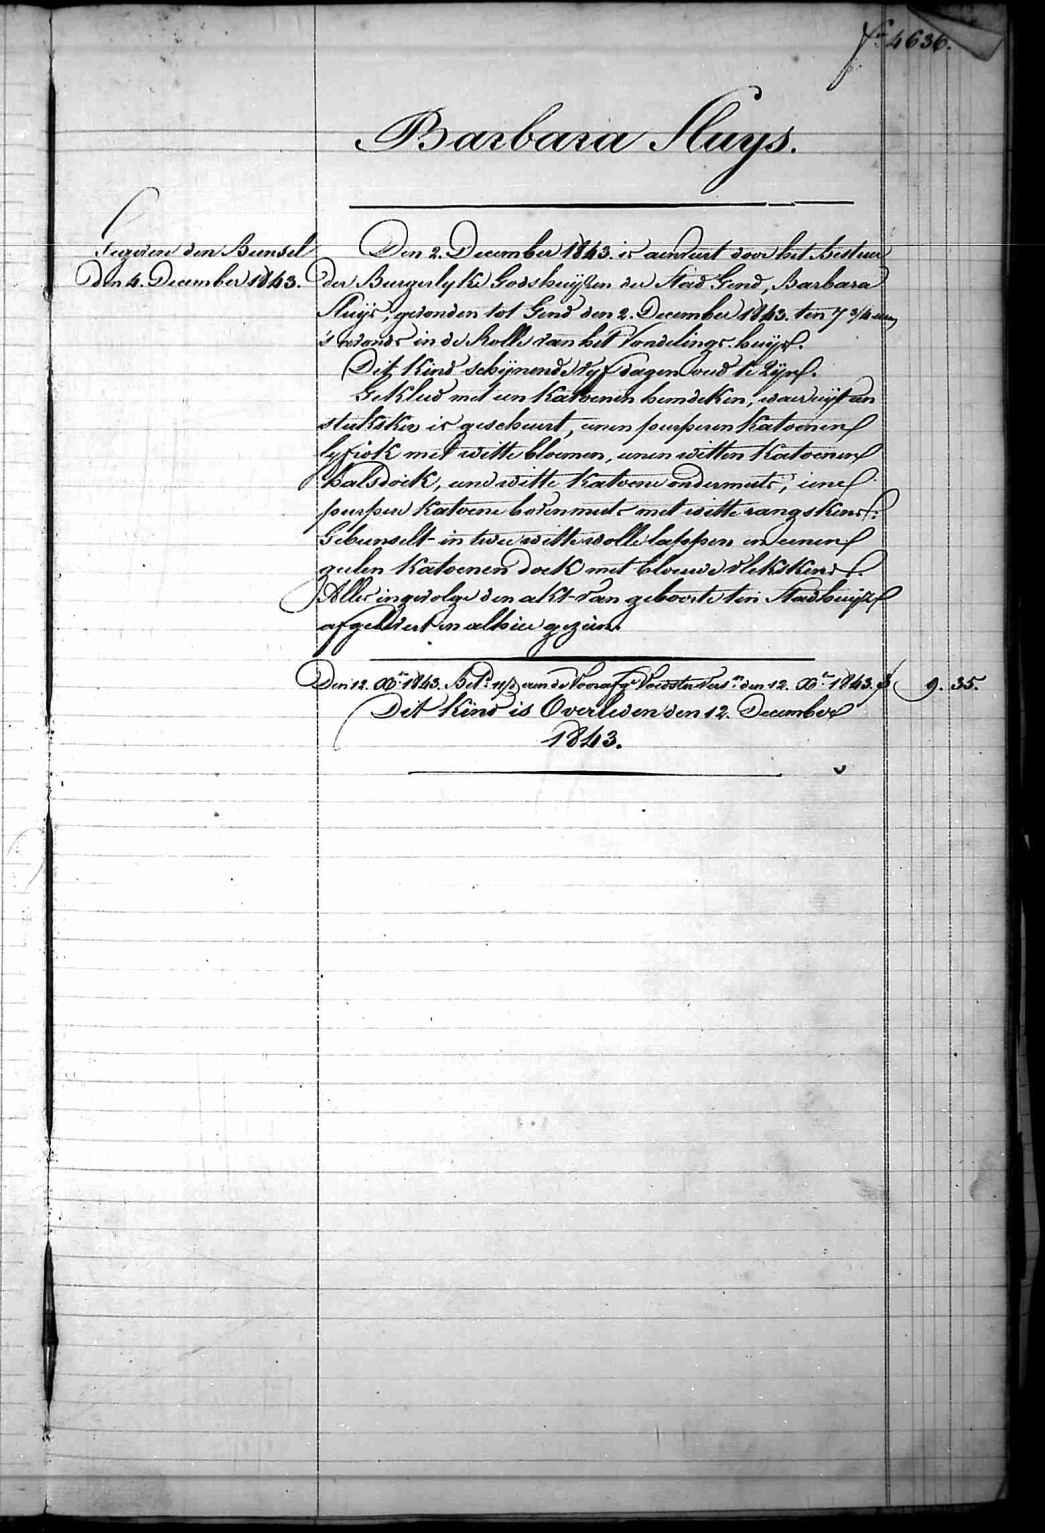 f° 4636.
Barbara Sluys.
Gegeven den Bunsel
den 4. December 1843.
Den 2. December 1843. is aenveirt door het Bestuur
der Burgerlyke Godshuijzen der Stad Gend, Barbara
Sluijs, gevonden tot Gend den 2. December 1843. ten 7 3/4 uren
's avonds in de Rolle van het Vondelings-huijs.
Dit Kind schijnende vijf dagen oud te Zijn.
Gekleed met een Katoenen hemdeken, waer uijt een
stuksken is gescheurt, eenen purperen Katoenen
lyfrok met witte bloemen, eenen witten Katoenen
halsdoek, eene witte Katoene ondermuts, eene
purpere Katoene bovenmuts met witte rangskens.
Gebunselt in twee witte wolle lappen en eenen
geelen Katoenen doek met blouwe vlekskens.
Alles ingevolge den akt van geboorte ten Stadhuijze
afgelevert en alhier gezien.
Den 12. Xber 1843. Bet. aen de Voorafg Voedster den 12. Xber 1843. 9. 35.
Dit Kind is Overleden den 12. December
1843.